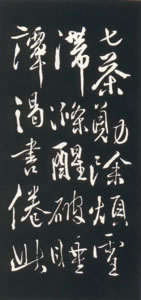 七茶勛除煩雪
滯滌醒破睡
譚渴書倦此